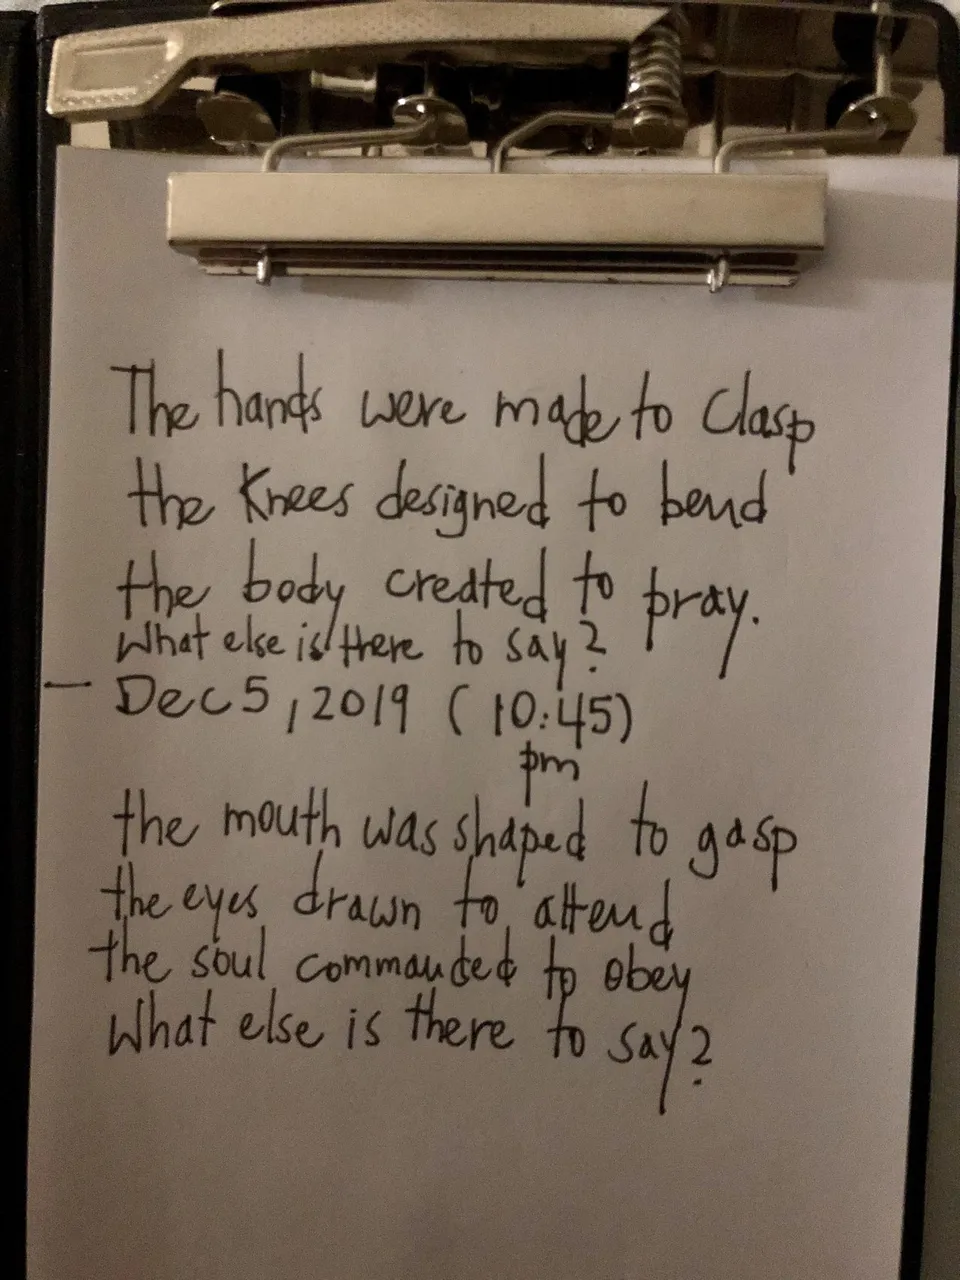 The hands were made to Clasp
the Knees designed to bend
the body created to pray.
What else is there to say?
— Dec 5, 2019 (10:45)
pm
the mouth was shaped to gasp
the eyes drawn to attend
the soul commanded to obey
What else is there to say?